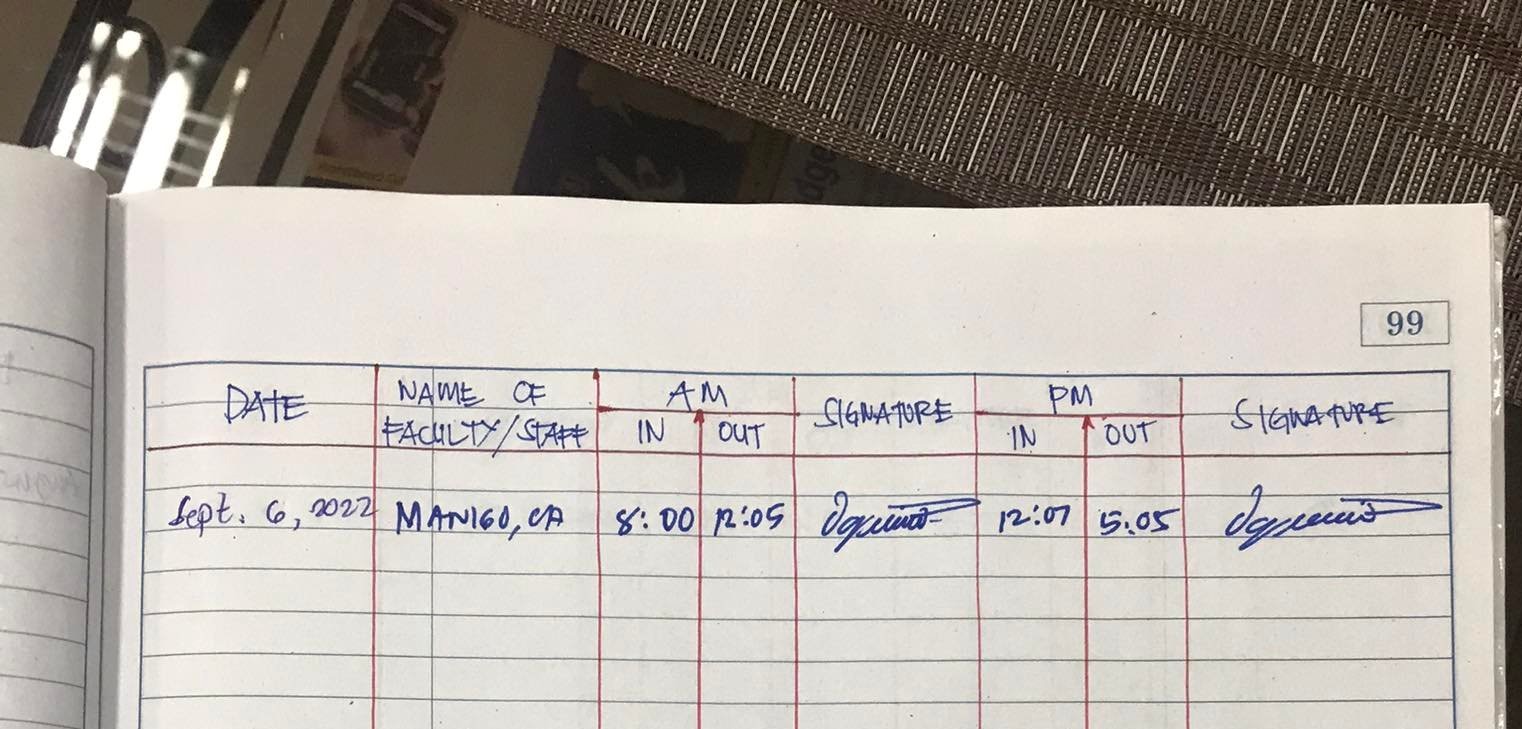 99
DATE NAME OF FACULTY/STAFF AM IN OUT SIGNATURE PM IN OUT SIGNATURE
Sept. 6, 2022 MANIGO, CA 8:00 12:05 12:07 5:05